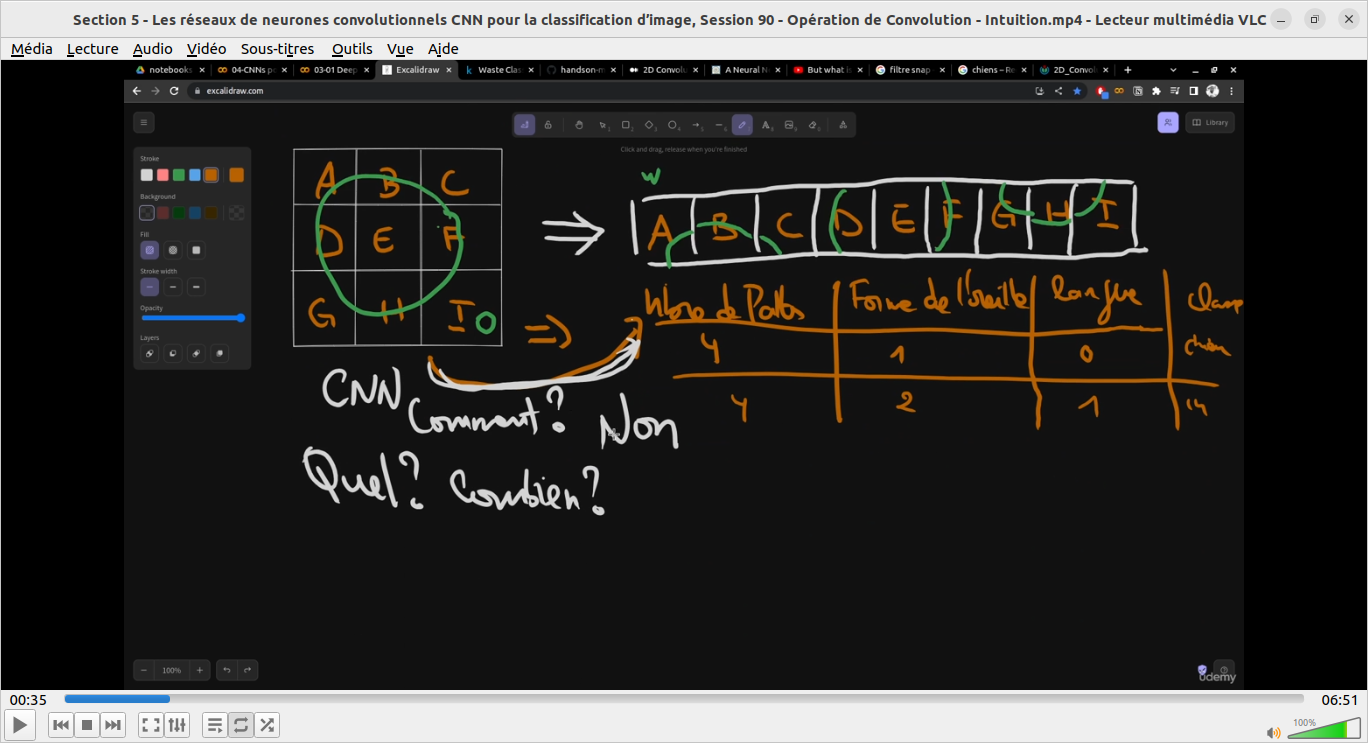 Section 5 - Les réseaux de neurones convolutionnels CNN pour la classification d'image, Session 90 - Opération de Convolution - Intuition.mp4 - Lecteur multimédia VLC
Média Lecture Audio Vidéo Sous-titres Outils Vue Aide
notebooks 04-CNNs p 03-01 Deep Excalidraw Waste Clas handson-m 2D Convol A Neural N But what is filtre snap chiens – Re 2D_Convol
excalidraw.com
Library
Click and drag, release when you're finished
Stroke
Background
Fill
Stroke width
Opacity
Layers
A B C
D E F
G H I
W
A B C D E F G H I
Nbre de Pattes Forme de l'oreille langue
4 1 0 chien
4 2 1
CNN Comment? Non
Quel? Combien?
100%
udemy
00:35 06:51
100%